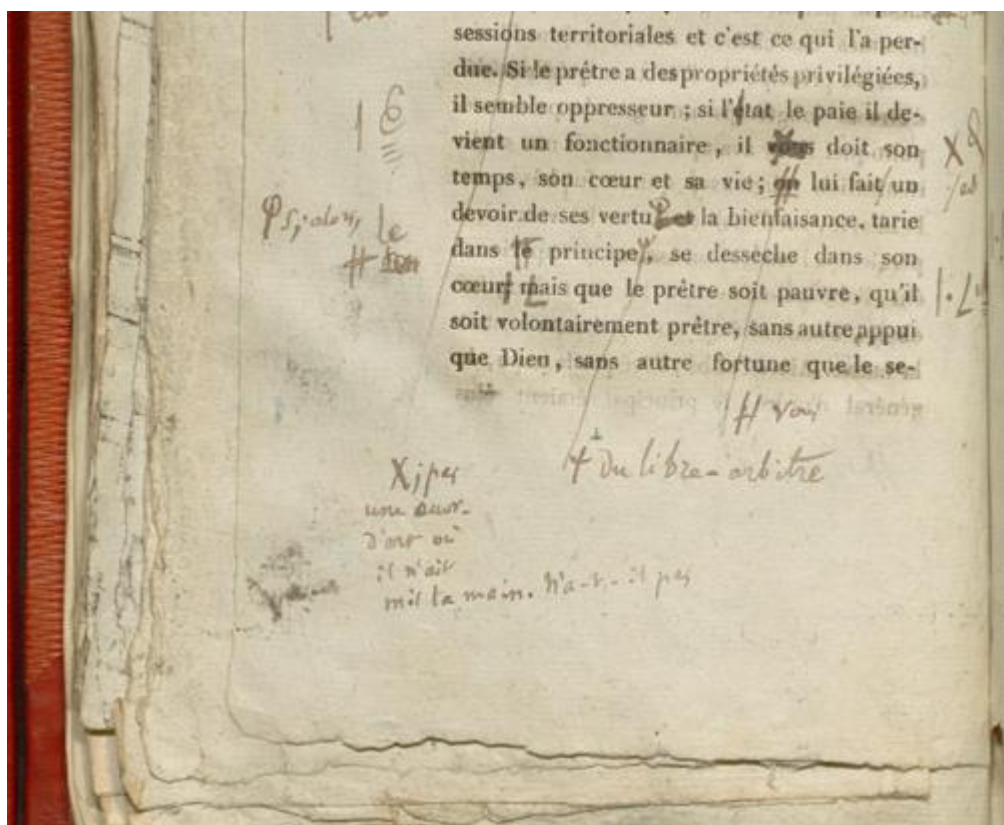 sessions territoriales et c'est ce qui l'a per-
due. Si le prêtre a des propriétés privilégiées,
il semble oppresseur ; si l'état le paie il de-
vient un fonctionnaire, il doit son
temps, son cœur et sa vie; lui fait un
devoir de ses vertus la bienfaisance, tarie
dans le principe, se dessèche dans son
cœur mais que le prêtre soit pauvre, qu'il
soit volontairement prêtre, sans autre appui
que Dieu, sans autre fortune que le se-
le
X; pas
+ Du libre-arbitre
d'art où
il n'ait
mis la main. N'a-t-il pas